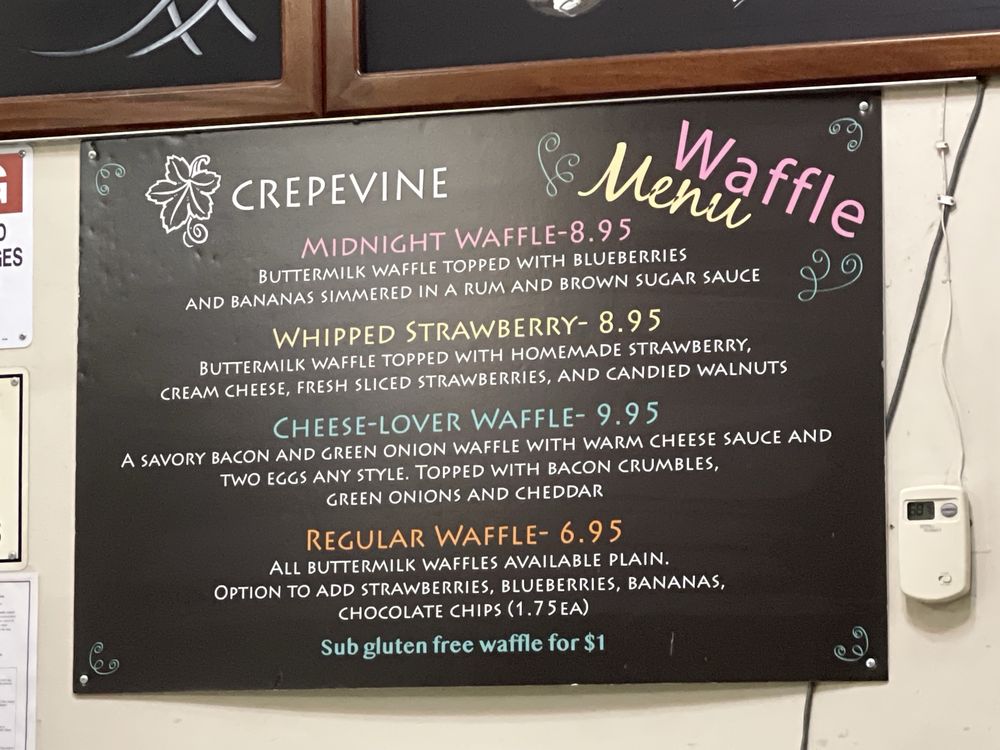 CREPEVINE
Waffle
Menu
MIDNIGHT WAFFLE-8.95
BUTTERMILK WAFFLE TOPPED WITH BLUEBERRIES
AND BANANAS SIMMERED IN A RUM AND BROWN SUGAR SAUCE
WHIPPED STRAWBERRY- 8.95
BUTTERMILK WAFFLE TOPPED WITH HOMEMADE STRAWBERRY,
CREAM CHEESE, FRESH SLICED STRAWBERRIES, AND CANDIED WALNUTS
CHEESE-LOVER WAFFLE- 9.95
A SAVORY BACON AND GREEN ONION WAFFLE WITH WARM CHEESE SAUCE AND
TWO EGGS ANY STYLE. TOPPED WITH BACON CRUMBLES,
GREEN ONIONS AND CHEDDAR
REGULAR WAFFLE- 6.95
ALL BUTTERMILK WAFFLES AVAILABLE PLAIN.
OPTION TO ADD STRAWBERRIES, BLUEBERRIES, BANANAS,
CHOCOLATE CHIPS (1.75EA)
Sub gluten free waffle for $1